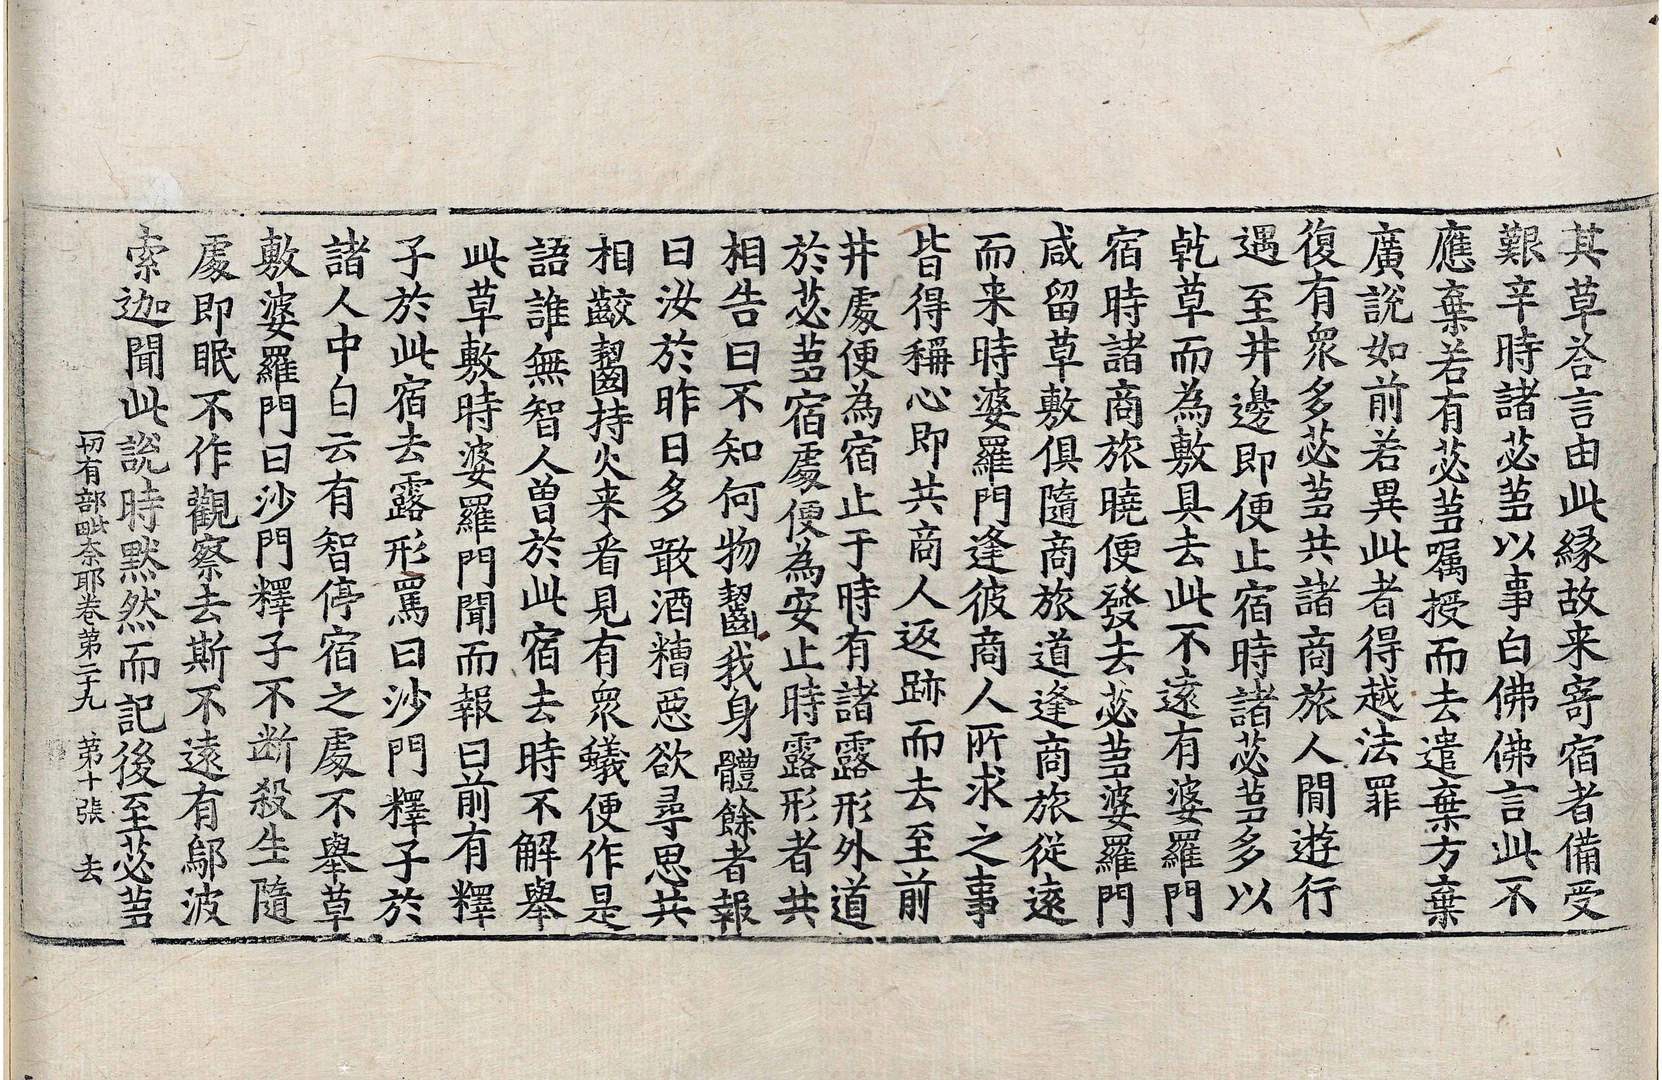 其草荅言由此緣故来寄宿者備受
艱辛時諸苾蒭以事白佛佛言此不
應棄若有苾蒭囑授而去遣棄方棄
廣說如前若異此者得越法罪
復有衆多苾蒭共諸商旅人間遊行
遇至井邊即便止宿時諸苾蒭多以
乹草而為敷具去此不遠有婆羅門
宿時諸商旅曉便發去苾蒭婆羅門
咸留草敷俱隨商旅道逢商旅從遠
而来時婆羅門逢彼商人所求之事
皆得稱心即共商人返跡而去至前
井處便為宿止于時有諸露形外道
於苾蒭宿處便為安止時露形者共
相告曰不知何物齧我身體餘者報
曰汝於昨日多噉酒糟惡欲尋思共
相齩齧持火来看見有衆蟻便作是
語誰無智人曽於此宿去時不解舉
此草敷時婆羅門聞而報曰前有釋
子於此宿去露形罵曰沙門釋子於
諸人中自云有智停宿之處不舉草
敷婆羅門曰沙門釋子不断殺生隨
處即眠不作觀察去斯不遠有鄔波
索迦聞此說時黙然而記後至苾蒭
一切有部毗奈耶卷第二十九 第十張 去